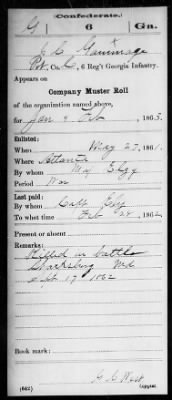 (Confederate.)
G 6 Ga.
J. C. Gammage
Pvt, Co. C, 6 Reg't Georgia Infantry.
Appears on
Company Muster Roll
of the organization named above,
for Jan & Feb, 1863.
Enlisted:
When May 27, 1861.
Where Atlanta
By whom Maj
Period War
Last paid:
By whom Capt
To what time Feb 28, 1862.
Present or absent
Remarks: Killed in battle
Sharksburg Md
Sept 17 1862
Book mark:
(642) Copyist.